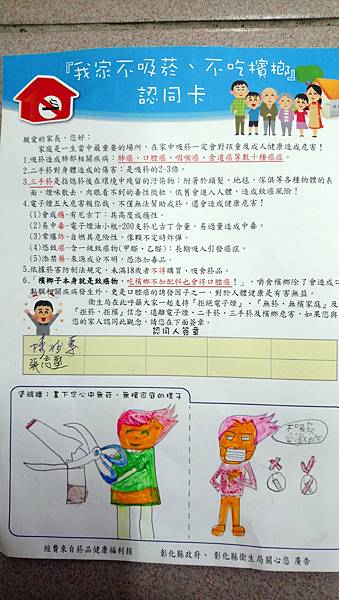 『我家不吸菸、不吃檳榔』
認同卡
親愛的家長，您好：
家庭是一生當中最重要的場所，在家中吸菸一定會對孩童及成人健康造成危害！
1.吸菸造成肺部相關疾病：肺癌、口腔癌、咽喉癌、食道癌等數十種癌症。
2.二手菸對身體造成的傷害：是吸菸的2-3倍。
3.三手菸是指捻菸後在環境中殘留的汙染物：附著於頭髮、地毯、傢俱等各種物體的表
面，煙味散去，肉眼看不到的毒性微粒，依舊會進入人體，造成致癌風險！
4.電子煙五大危害報你哉，不僅無法幫助戒菸，還會造成健康危害！
(1)會成癮-有尼古丁：具高度成癮性。
(2)易中毒-電子煙油小瓶=200支菸尼古丁含量，易過量造成中毒。
(3)常爆炸-自燃具危險性，像顆不定時炸彈。
(4)恐致癌-含一級致癌物(甲醛、乙醛)：長期吸入引發癌症。
(5)恐禁藥-來源成分不明，恐添加毒品。
5.依據菸害防制法規定，未滿18歲者不得購買，吸食菸品。
6.「檳榔子本身就是致癌物，吃檳榔不加配料也會得口腔癌！」，嚼食檳榔除了會造成口
腔黏膜相關疾病發生外，更是口腔癌的誘發因子之一，對於人體健康是有害無益。
衛生局在此呼籲大家一起支持『拒絕電子煙』、『無菸、無檳家庭』及
『拒菸、拒檳』信念，遠離電子煙、二手菸、三手菸及檳榔危害，如果您與
您的家人認同此觀念，請在下面簽章。
認同人簽章
塗鴉牆：畫下您心中無菸、無檳家庭的樣子
不吸菸
經費來自菸品健康福利捐
彰化縣政府、彰化縣衛生局關心您 廣告